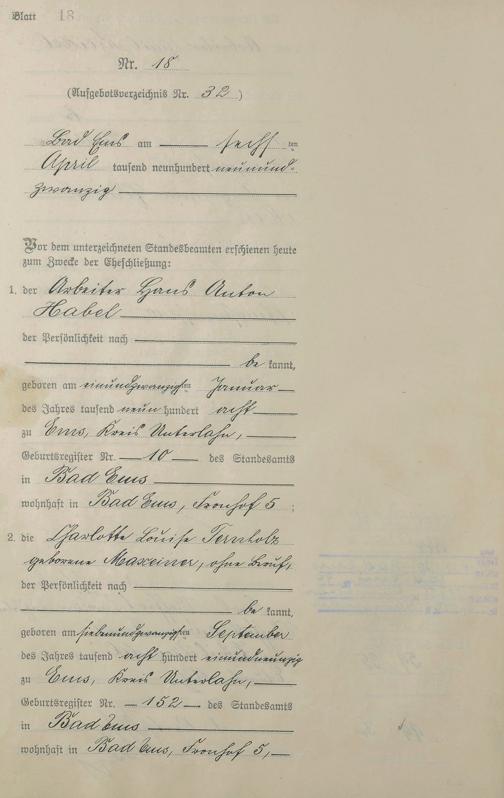 Blatt 18
Nr. 18
(Aufgebotsverzeichnis Nr. 32)
Bad Ems am sechsten
April tausend neunhundert neunund-
zwanzig
Vor dem unterzeichneten Standesbeamten erschienen heute
zum Zwecke der Eheschließung:
1. der Arbeiter Hans Anton
Habel
der Persönlichkeit nach
be kannt,
geboren am einundzwanzigsten Januar
des Jahres tausend neun hundert acht
zu Ems, Kreis Unterlahn,
Geburtsregister Nr. 10 des Standesamts
in Bad Ems
wohnhaft in Bad Ems, Fronhof 5;
2. die Charlotte Louise
geborene Maxeiner, ohne Beruf,
der Persönlichkeit nach
be kannt,
geboren am siebenundzwanzigsten September
des Jahres tausend acht hundert einundneunzig
zu Ems, Kreis Unterlahn,
Geburtsregister Nr. 152 des Standesamts
in Bad Ems
wohnhaft in Bad Ems, Fronhof 5,